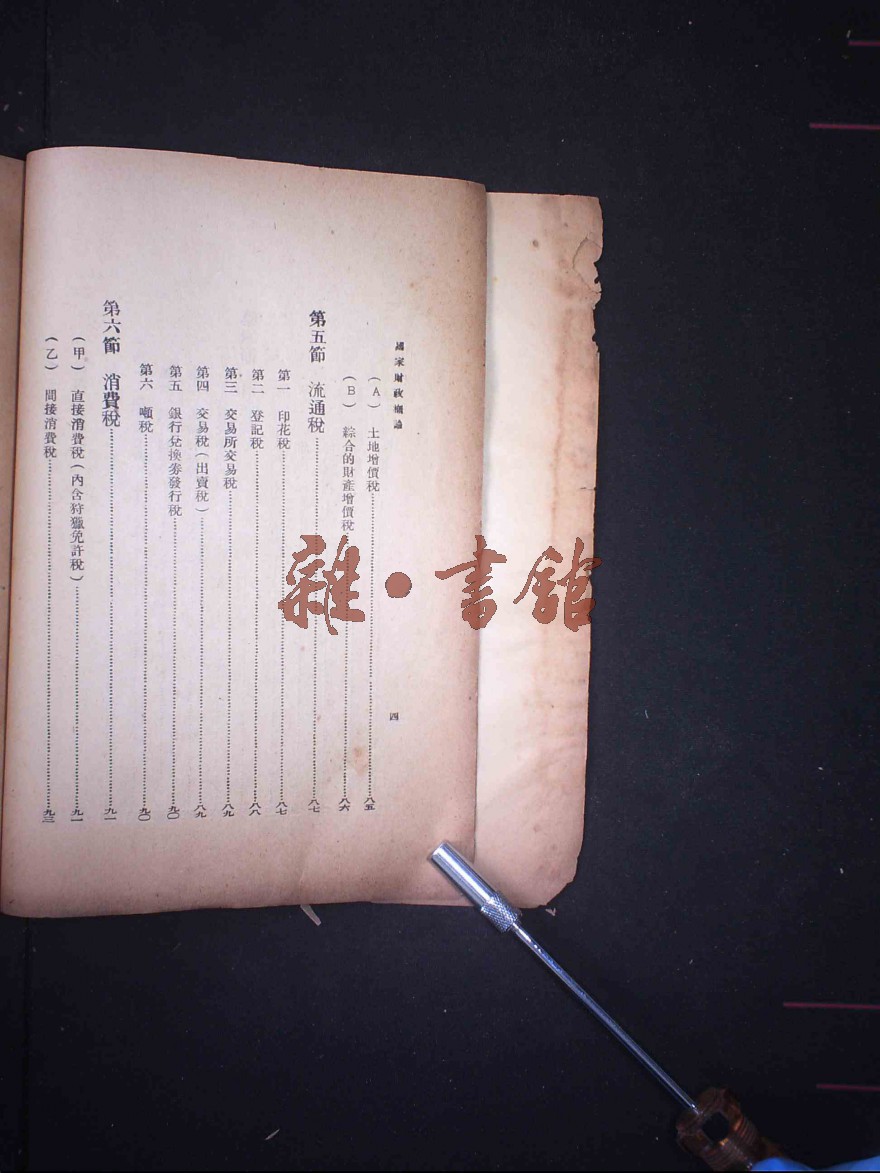 國家財政概論
四
（A） 土地增價稅……八五
（B） 綜合的財產增價稅……八六
第五節 流通稅……八七
第一 印花稅……八七
第二 登記稅……八八
第三 交易所交易稅……八九
第四 交易稅（出賣稅）……八九
第五 銀行兌換劵發行稅……九〇
第六 噸稅……九〇
第六節 消費稅……九一
（甲） 直接消費稅（內含狩獵免許稅）……九一
（乙） 間接消費稅……九三
雜•書館